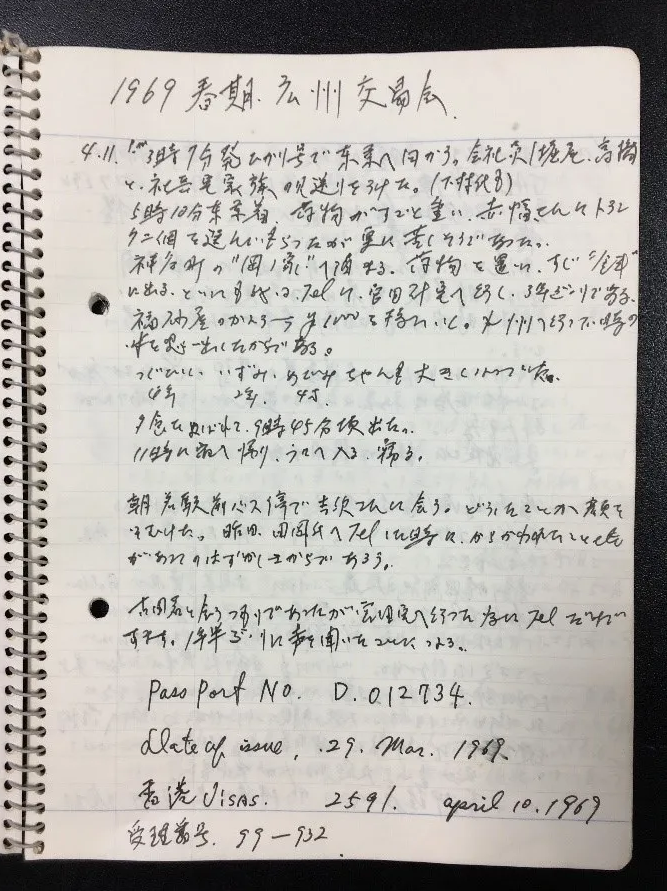 1969 春期 広州交易会
4.11. 3時7分発ひかり号で東京へ向かう。会社 堀尾、高橋
と、社長見家族の見送りをうけた。
5時10分東京着、荷物がすごく重い、赤帽さんにトラン
ク二個を運んでもらったが実に苦しそうであった。
神谷町の"岡 家"へ泊る。荷物を置いて、すぐ
に出る。 Tel して、宮田 宅へ行く。3年ぶりである。
福砂屋のカステラ ¥1000を持っていく。九州へ行った時の
を思い出したからである。
いずみ、めぐみちゃんも大きくなっていた。
6年 2年 4才
夕食をよばれて、9時45分頃出た。
11時に宿へ帰り、ふろへ入る、寝る。
朝 駅前バス停で吉 さんに会う。どうしたことか顔を
そむけた。昨日、田岡氏へ Tel した時に、からかわれたこと
があったのはずかしさからであろう。
吉田君と会うつもりであったが宮田宅へ行ったために Tel だけで
すます。1年半ぶりに声を聞いたことになる。
Pass Port NO. D.012734.
Date of issue, .29. Mar. 1969.
香港 Visas. 2591. april 10.1969
受理番号. 99-932